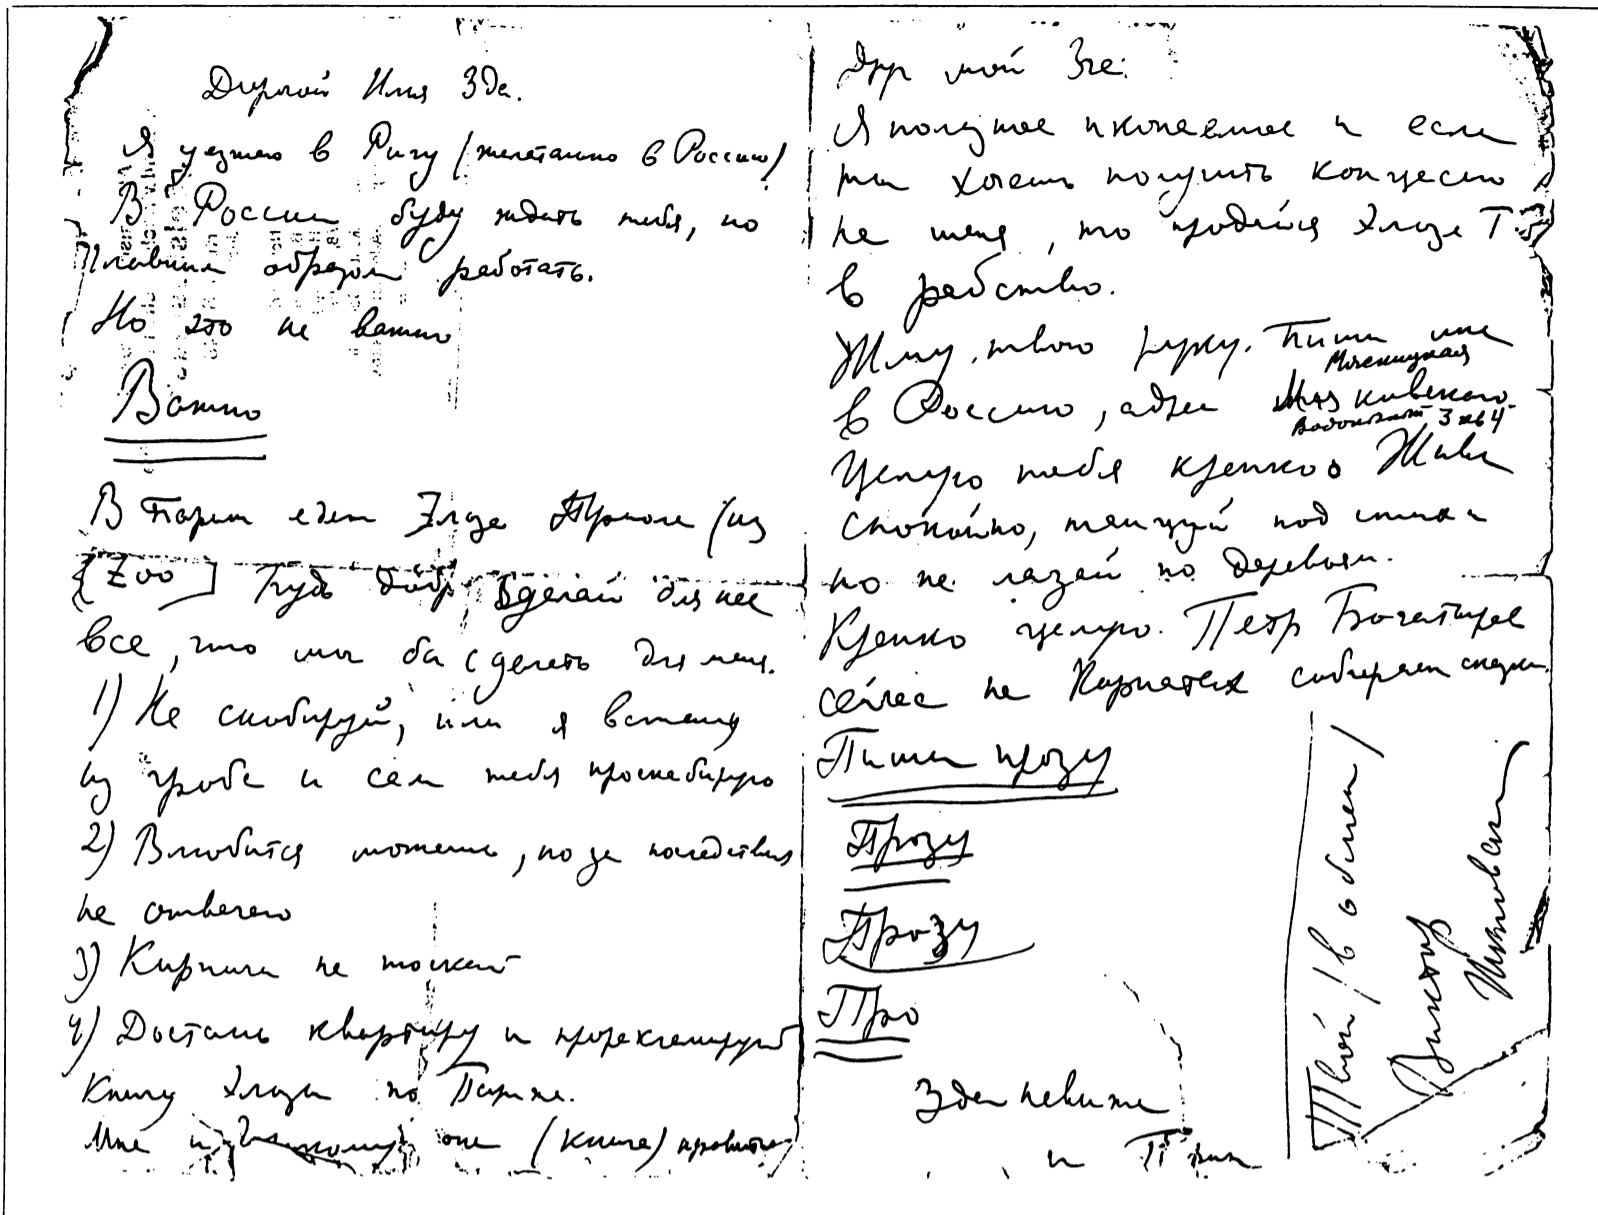 Дорогой Илья Зда.
Я уезжаю в Ригу (желательно в Россию)
В России буду ждать тебя, но
главным образом работать.
Но это не важно
Важно
В Париж едет Эльза Триоле (из
[Zoo] Будь добр сделай для нее
все, что мог бы сделать для меня.
1) Не скандируй, или я встану
из гроба и сам тебя
2) Влюбится можешь, но за последствия
не отвечаю
3) Кирпичи не таскай
4) Достань квартиру и прорекламируй
книгу Эльзы по Парижу.
Мне и она (книга) нравится
Друг мой Зда.
Я полезное ископаемое и если
ты хочешь получить концессию
на меня, то продайся Эльзе Т.
в рабство.
Жму твою руку. Пиши мне
Мясницкая
в Россию, адрес Маяковского
Водопьяный 3 кв 4
Целую тебя крепко Живи
спокойно, танцуй под стихи
но не лазай по деревьям.
Крепко целую. Петр Богатырев
сейчас на Карпатах собирает сказки.
Пиши прозу
Прозу
Прозу
Про
Зданевичу
и
Твой (в общем)
Виктор
Шкловский